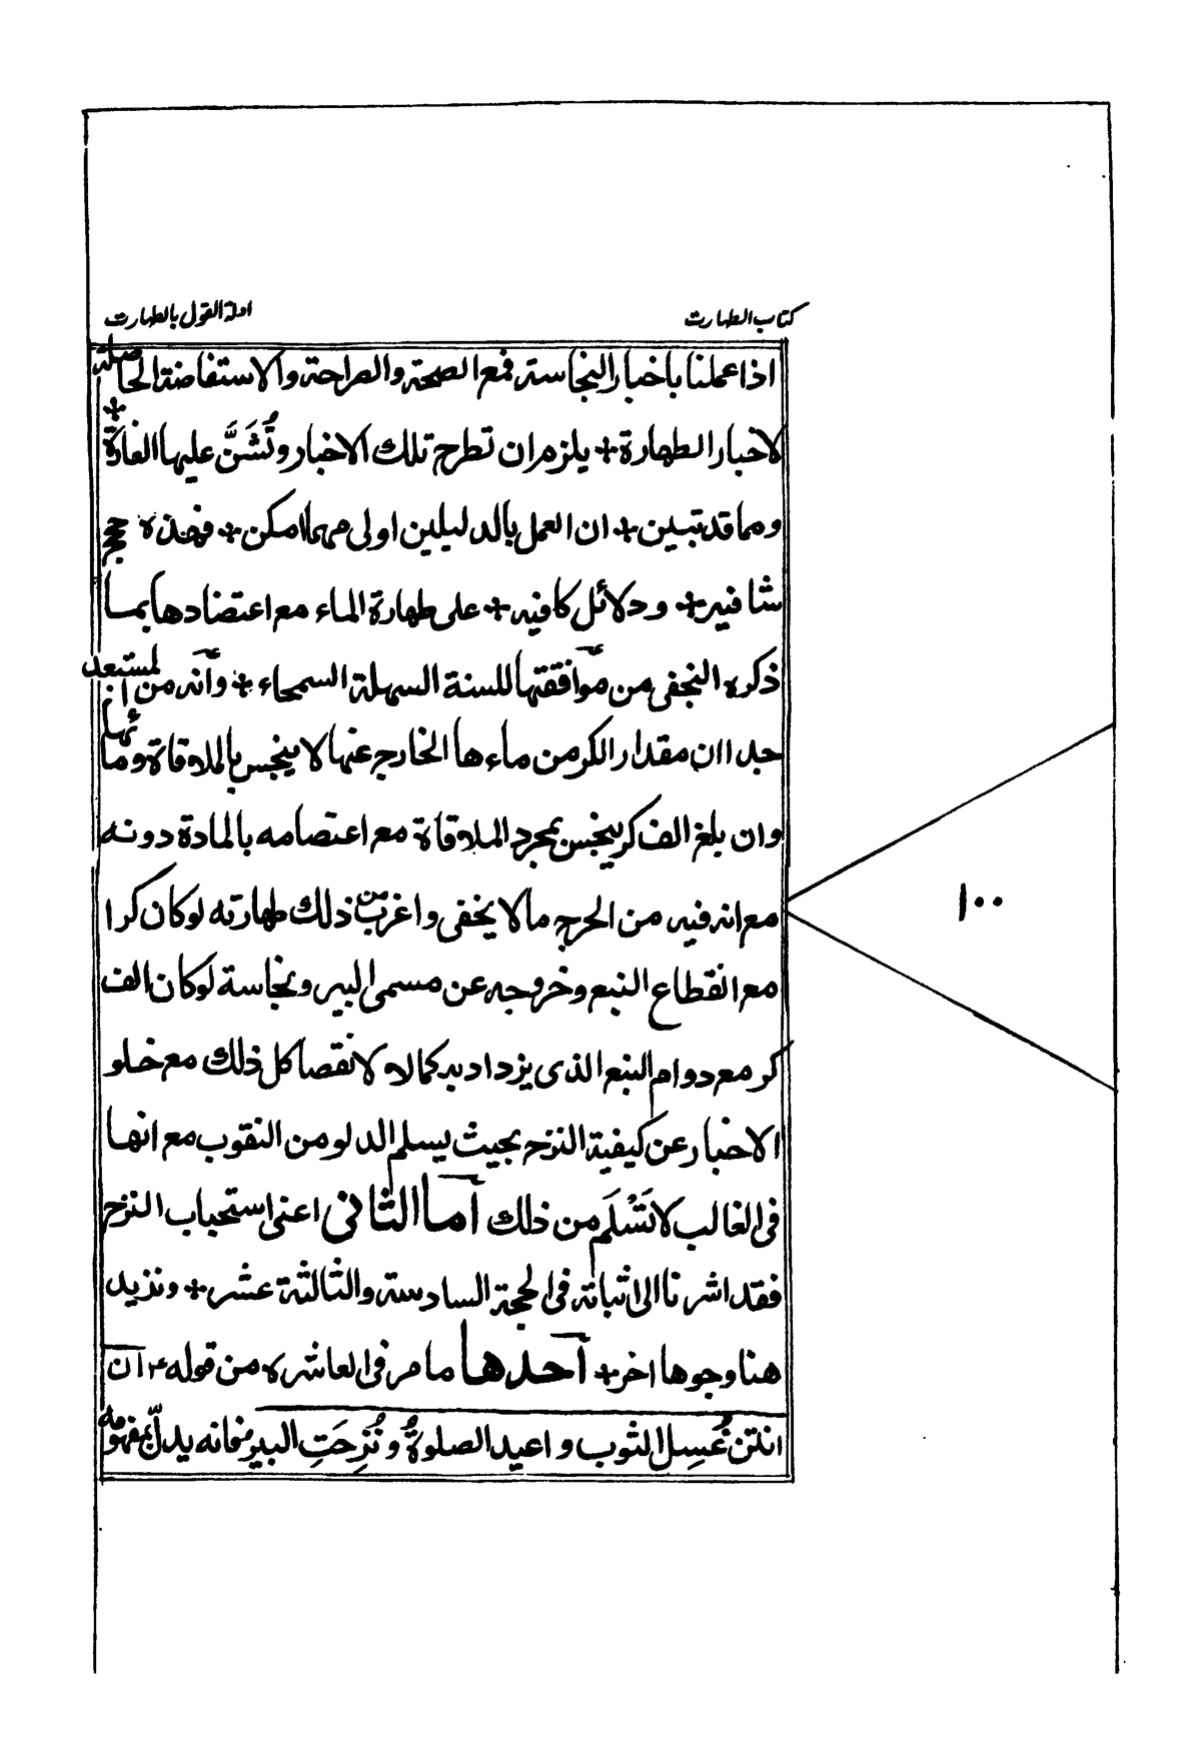 كتاب الطهارت
ادلة القول بالطهارت
اذا عملنا باخبار النجاسة فمع الصحة والصراحة والاستفاضة الحاصلة
لاخبار الطهارة + يلزم ان تطرح تلك الاخبار وتُشَنَّ عليها الغارة +
ومما قد تبين + ان العمل بالدليلين اولى مهما امكن + فهذه حجج
شافيه + ودلائل كافيه + على طهارة الماء مع اعتضادها بما
ذكره النجفى من موافقتها للسنة السهلة السمحاء + وانه من المستبعد
جدا ان مقدار الكر من ماءها الخارج عنها لا ينجس بالملاقاة ومائها
وان بلغ الف كر ينجس بمجرد الملاقاة مع اعتصامه بالمادة دونه
مع انه فيه من الحرج ما لا يخفى واغرب من ذلك طهارته لو كان كرا
مع انقطاع النبع وخروجه عن مسمى البير ونجاسة لو كان الف
كر مع دوام النبع الذى يزداد به كمالا لا نقصا كل ذلك مع خلو
الاخبار عن كيفية النزح بحيث يسلم الدلو من الثقوب مع انها
فى الغالب لا تَسْلَم من ذلك اما الثانى اعنى استحباب النزح
فقد اشرنا الى اثباته فى الحجة السادسة والثالثة عشر + ونزيد
هنا وجوها اخر + احدها ما مر فى العاشره من قوله ع ان
انتن غُسِل الثوب واعيد الصلوةُ ونُزِحَتِ البير فانه يدلّ بمفهومه
١٠٠